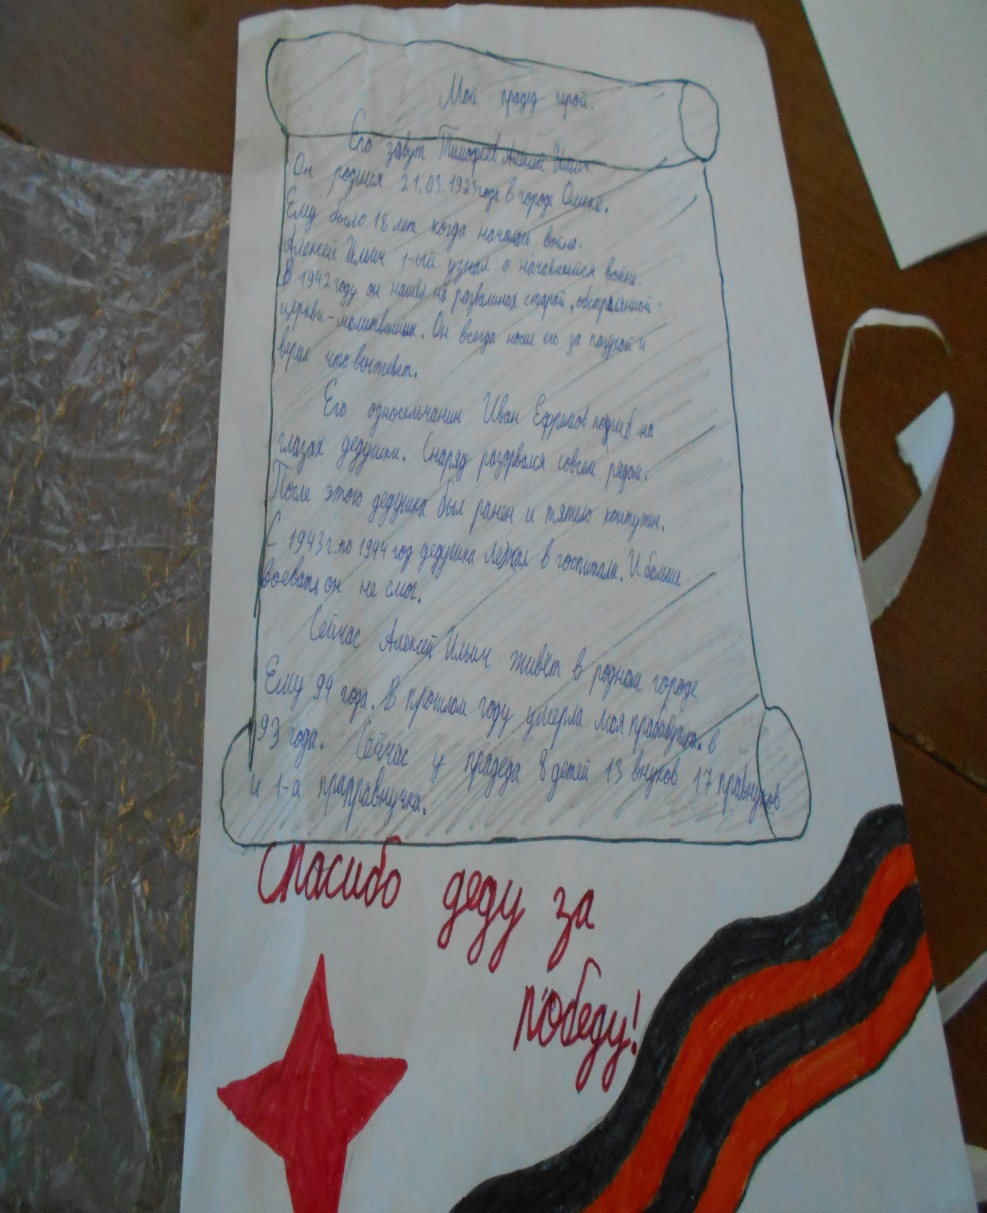 Мой прадед - герой.
Его зовут Тимофеев Алексей Ильич.
Он родился 21.03.1923года в городе Омске.
Ему было 18 лет когда началась война.
Алексей Ильич 1-ый узнал о начавшейся войне.
В 1942 году он нашёл на развалинах старой, обстрелянной
церкви-молитвенник. Он всегда носил его за пазухой и
верил что выживет.
Его односельчанин Иван Ефремов погиб на
глазах дедушки. Снаряд разорвался совсем рядом.
После этого дедушка был ранен и тяжело контужен.
С 1943г.по 1944 год дедушка лежал в госпитале. И больше
воевать он не смог.
Сейчас Алексей Ильич живёт в родном городе
Ему 94 года. В прошлом году умерла моя прабабушка. в
93 года. Сейчас у прадеда 8 детей 13 внуков 17 правнуков
и 1-а праправнучка.
Спасибо деду за
победу!